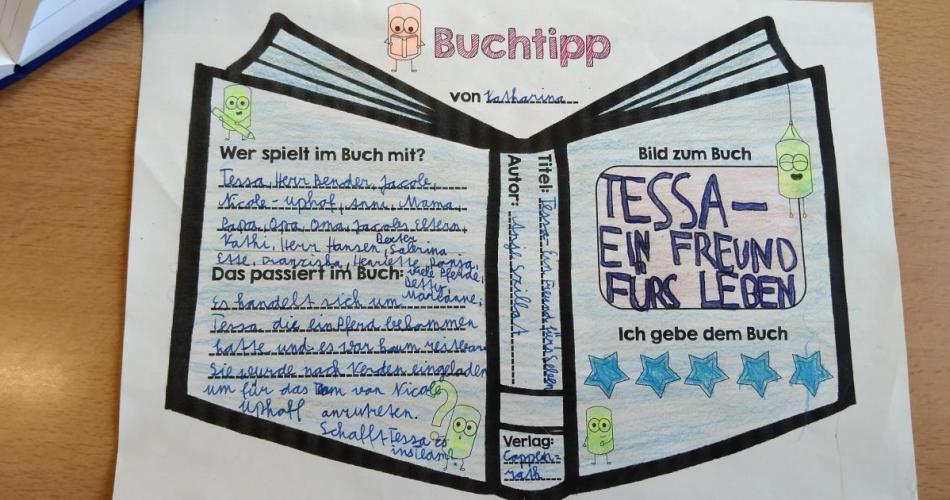 Buchtipp
von Katharina
Wer spielt im Buch mit?
Tessa, Herr Bender, Jacole,
Nicole-Uphof, Anni, Mama,
Papa, Opa, Oma, Jacoles Eltern,
Kathi, Herr Hansen, Sabrina
Dexter
Elfe, Franziska, Henriette, Ponsa,
viele Pferde,
Betty,
Marianne,
Das passiert im Buch:
Es handelt sich um
Tessa die ein Pferd bekommen
hatte und es war kaum reitbar
Sie wurde nach Verden eingeladen
um für das Team von Nicole
Uphoff anzutreten.
Schafft Tessa es
ins Team?
Titel: Tessa- Ein Freund fürs Leben
Autor: Antje Szillat
Verlag:
Coppen-
rath
Bild zum Buch
TESSA-
EIN FREUND
FÜRS LEBEN
Ich gebe dem Buch